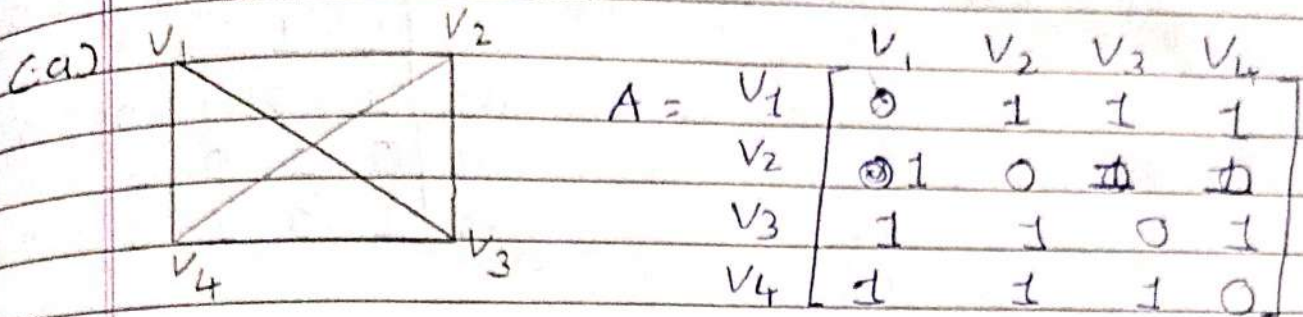 (a) V1 V2
V4 V3
V1 V2 V3 V4
A = V1 0 1 1 1
V2 1 0 1 1
V3 1 1 0 1
V4 1 1 1 0